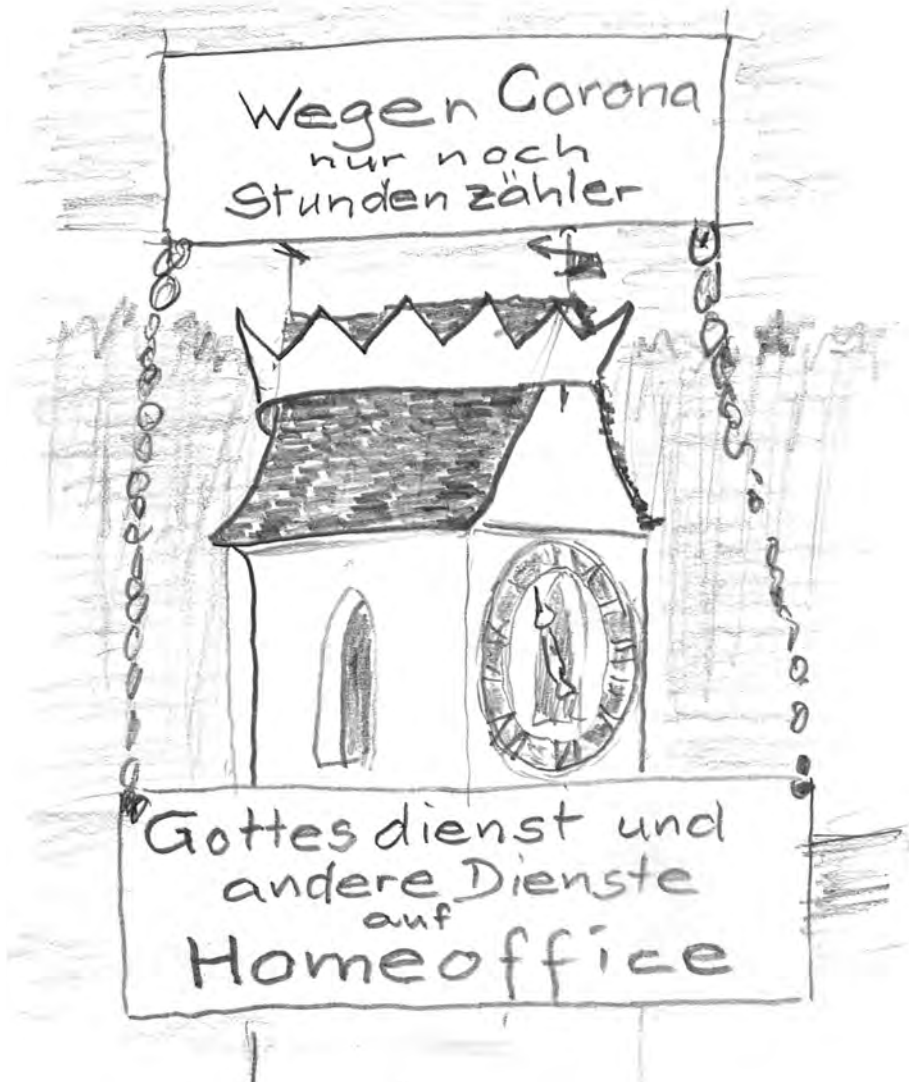 Wegen Corona
nur noch
Stundenzähler
Gottesdienst und
andere Dienste
auf
Homeoffice